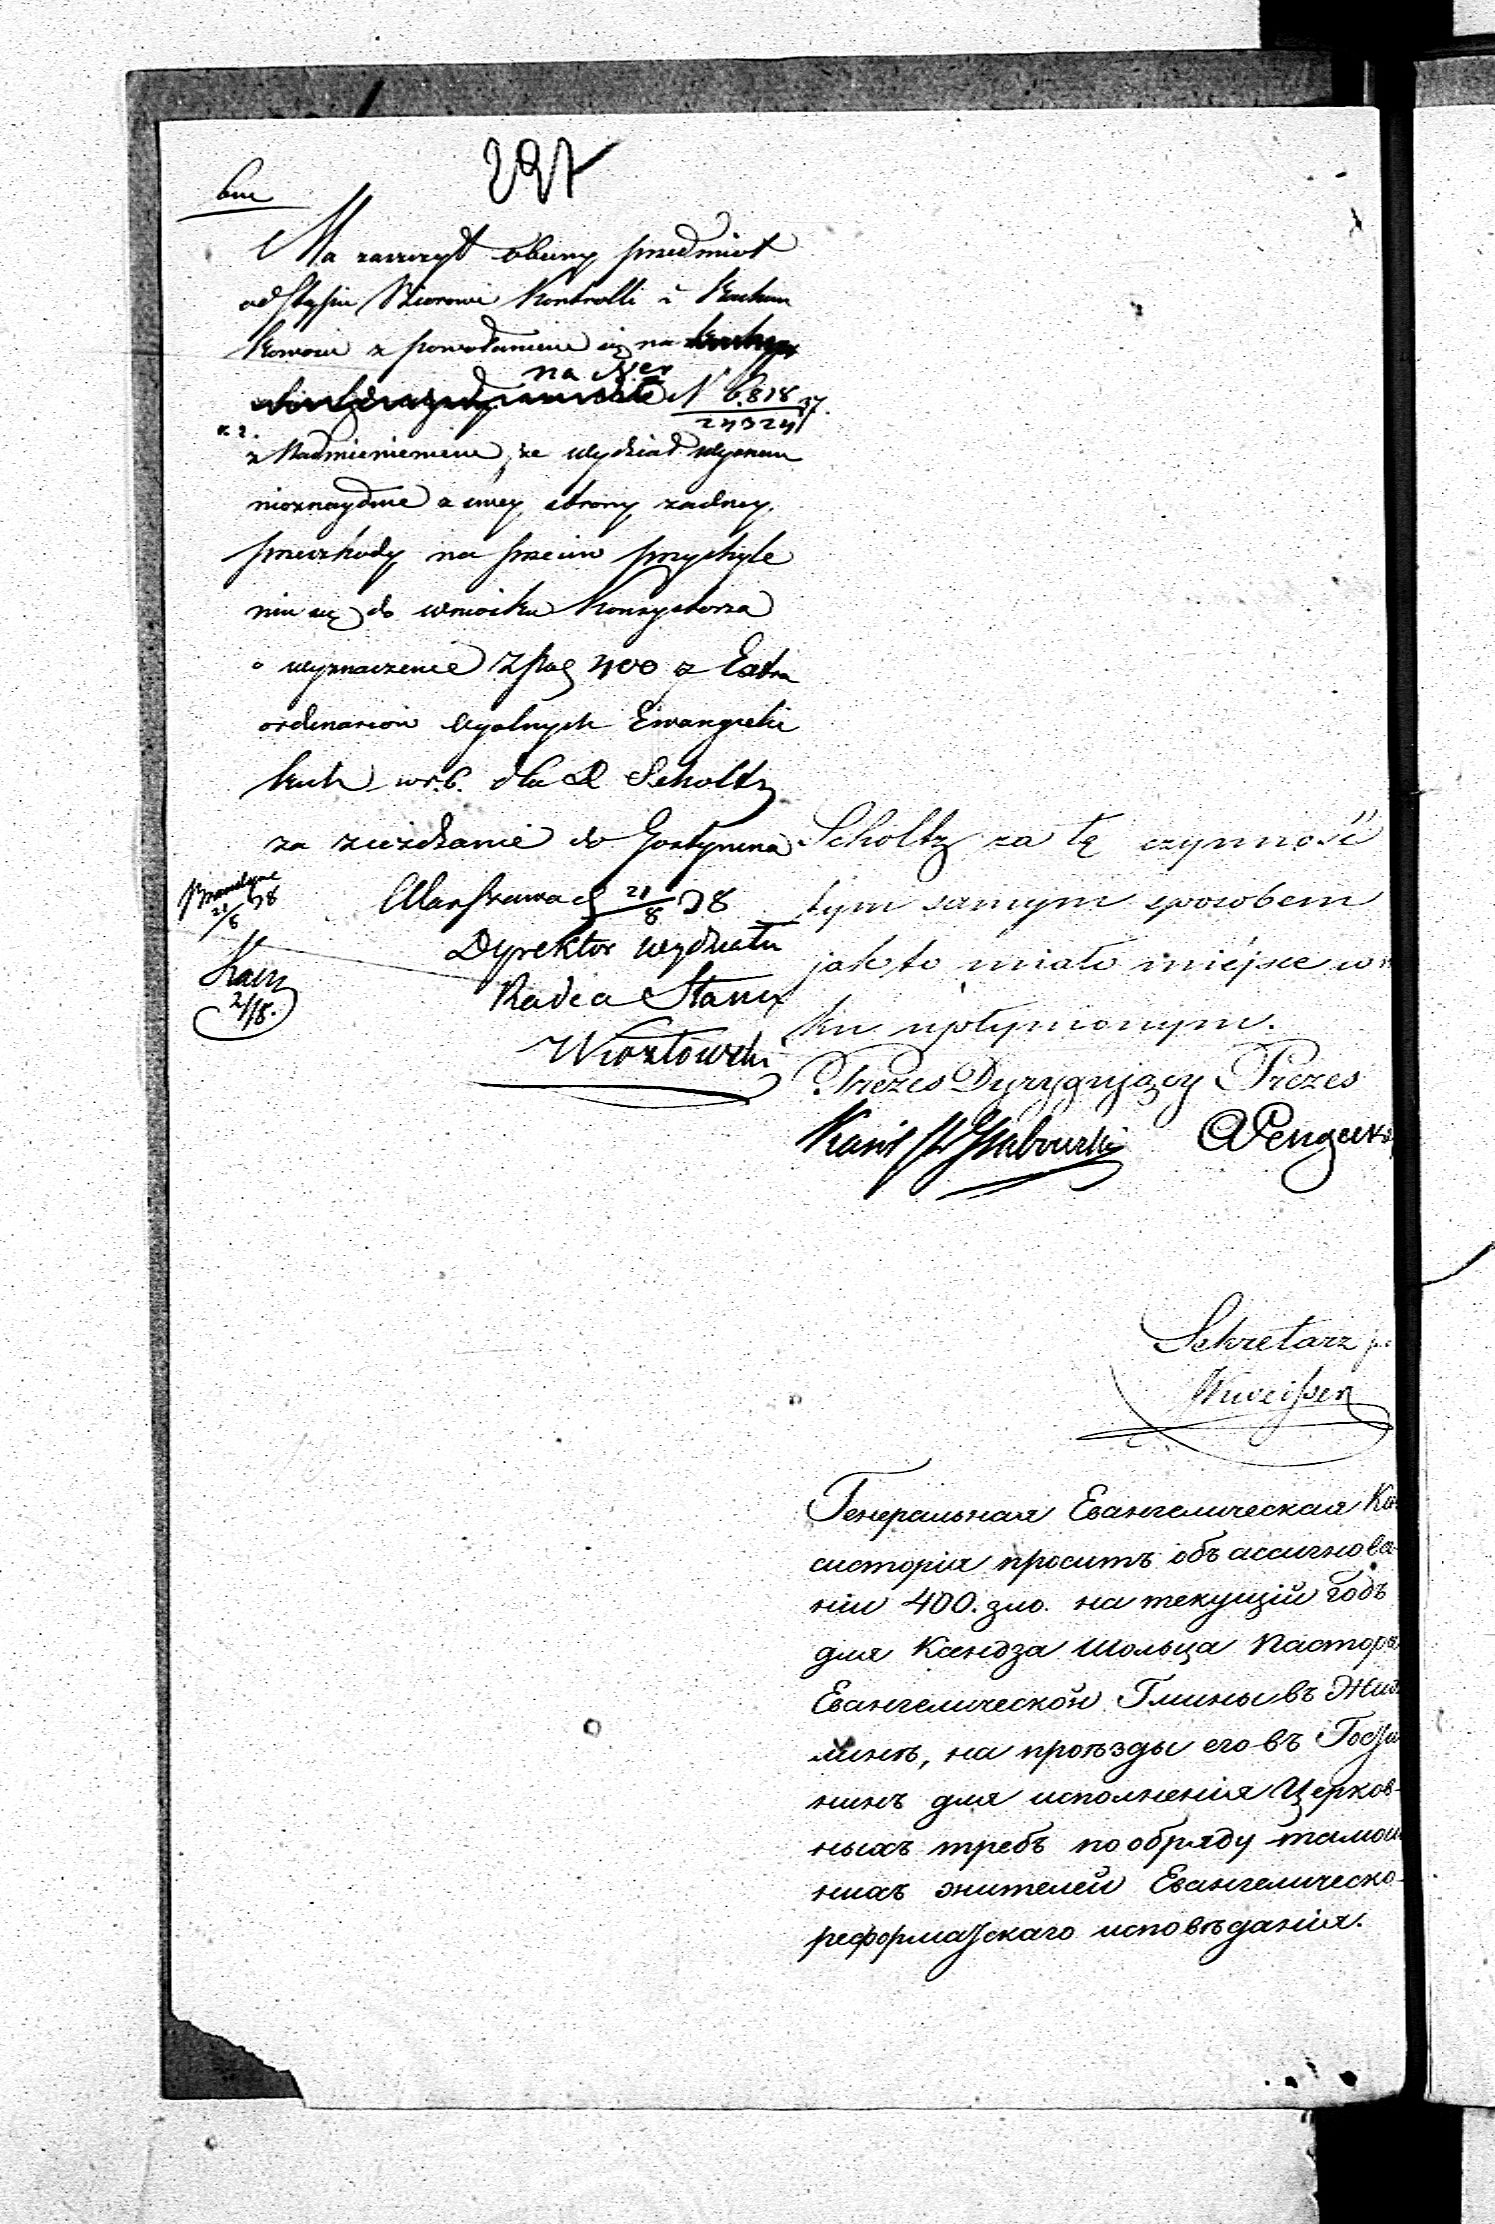 297
Ma zaszczyt obecny przedmiot
odstąpić Biorowi Kontrolli i Rachun
kowości z powołaniem się na
na Ner
N 6818/24324 37.
z Nadmienieniem, że Wydział Wyznań
nieznayduie z swey strony żadney
przeszkody na przeciw przychyle
niu się do wniosku Konsystorza
o wyznaczenie Złpol 400 z Extra
ordinariów ogolnych Ewangelic
kich w r.b. dla X Scholtz
za zieżdżanie do Gostynina
Warszawa d 21/8 38
Dyrektor Wydziału
Radca Stanu
21/8 38
21/8.
Scholtz za tę czynność
tym samym sposobem
jak to miało miéjsce w
ku upłynionym.
Prezes Dyrygujący Prezes
Sekretarz
Генеральная Евангелическая Ко
систорія проситъ объ ассигнова-
ніи 400. зло. на текущій годъ
для Ксендза Шольца Пастора
Евангелической Гмины въ Жих
линѣ, на проѣзды его въ Госты
нинъ для исполненія Церков-
ныхъ требъ по обряду тамош
нихъ жителей Евангелическо-
реформатскаго исповѣданія.